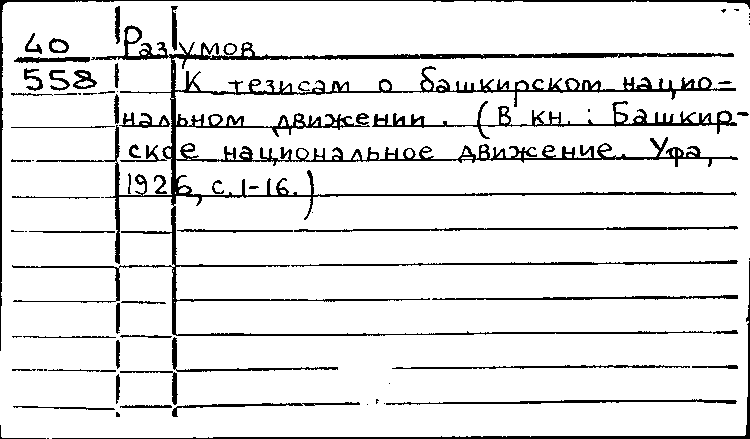 40 Разумов
558 К тезисам о башкирском нацио-
нальном движении. (В кн.: Башкир-
ское национальное движение. Уфа,
1926, с. 1-16.)